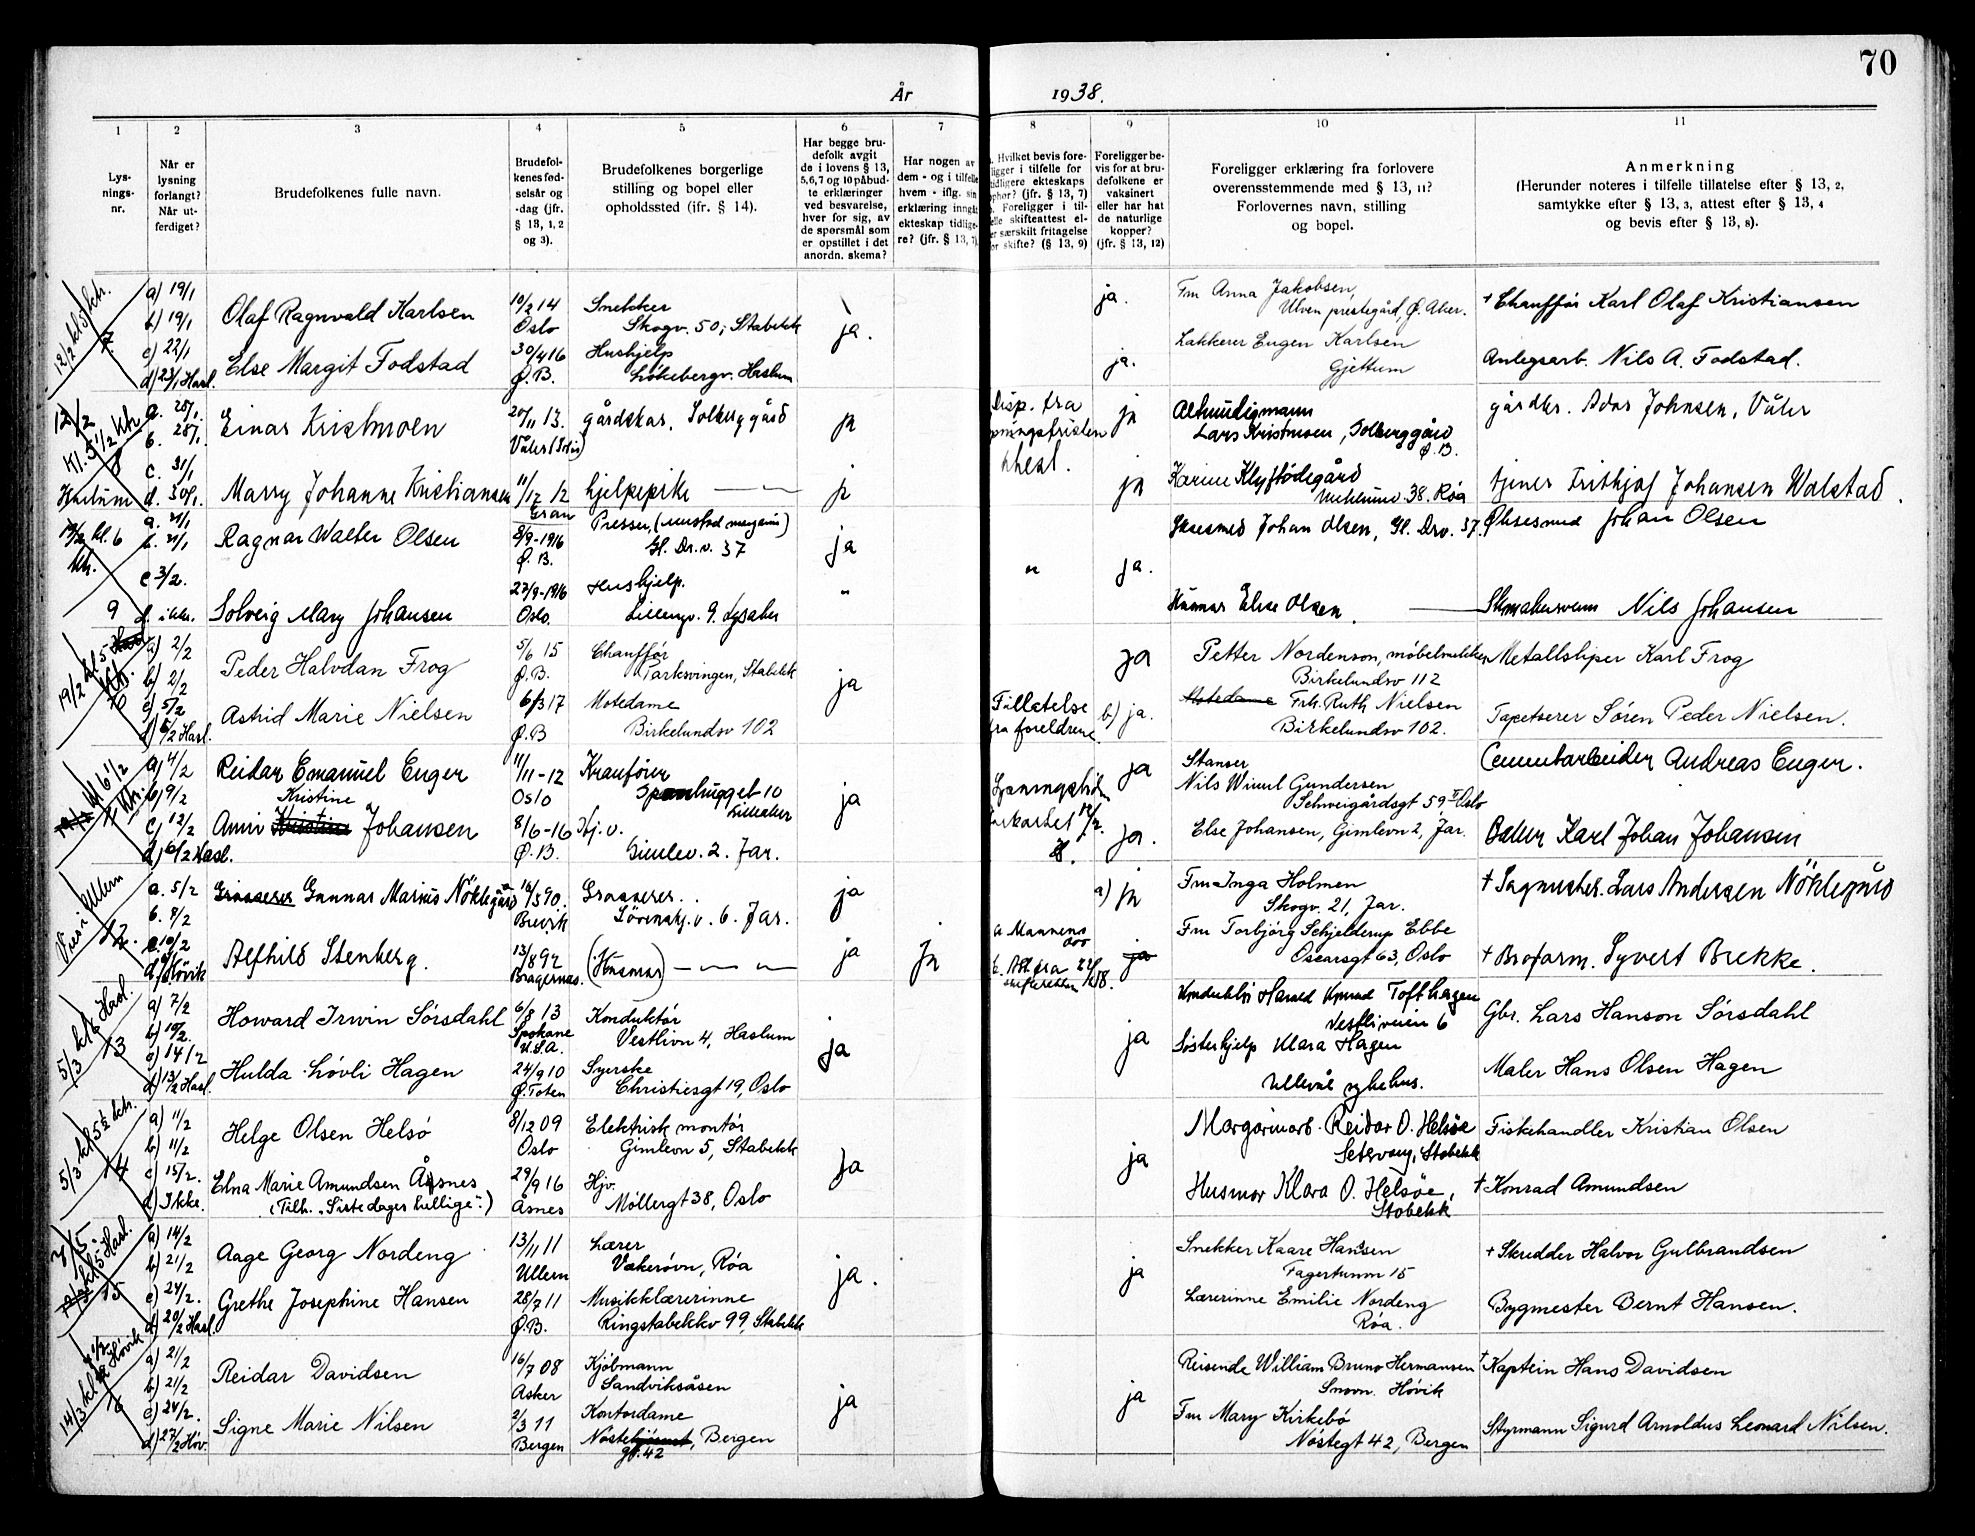 70
År 1938.
1 2 3 4 5 6 7 8 9 10 11
Lys-
nings-
nr.
Når er
lysning
forlangt?
Når ut-
ferdiget?
Brudefolkenes fulle navn.
Brudefol-
kenes fød-
selsår og
-dag (jfr.
§ 13, 1, 2
og 3).
Brudefolkenes borgerlige
stilling og bopel eller
opholdssted (ifr. § 14).
Har begge bru-
defolk avgit
de i lovens § 13,
5,6,7 og 10 påbud-
te erklæringer
ved besvarelse,
hver for sig, av
de spørsmål som
er opstillet i det
anordn. skema?
Har nogen av
dem - og i tilfelle
hvem - iflg. sin
erklæring inngått
ekteskap tidlige-
re? (jfr. § 13, 7)
Hvilket bevis fore-
ligger i tilfelle for
tidligere ekteskaps
ophør? (jfr. § 13, 7)
Foreligger i til-
felle skifteattest el-
er særskilt fritagelse
for skifte? (§ 13, 9)
Foreligger be-
vis for at bru-
defolkene er
vaksinert
eller har hat
de naturlige
kopper?
(jfr. § 13, 12)
Foreligger erklæring fra forlovere
overensstemmende med § 13, 11?
Forlovernes navn, stilling
og bopel.
Anmerkning
(Herunder noteres i tilfelle tillatelse efter § 13, 2,
samtykke efter § 13, 3, attest efter § 13, 4
og bevis efter § 13, 8).
12/2 kl 5 kr.
7
a) 19/1
b) 19/1
c) 22/1
d) 23/1 Hasl.
Olaf Ragnvald Karlsen
10/2 14
Oslo
Snekker
Skogv. 50, Stabekk
ja.
ja.
Fru Anna Jakobsen,
Ulven prestegård, Ø. Aker.
† Chauffør Karl Olaf Kristiansen
Else Margit Fodstad
30/4 16
Ø. B.
Hushjelp
Løkebergv. Haslum
ja.
Lakkerer Eugen Karlsen
Gjettum
Anlegsarb. Nils A. Fodstad.
12/2
Kl. 5 1/2 Kh
8
Haslum
a. 28/1
b. 28/1
c. 31/1
d. 30/1
Einar Kristmoen
20/11 13.
Våler (Solør)
gårdskar, Solberg gård
ja
Disp. fra
hest.
ja
Lars Kristmoen, Solberg gård
Ø. B.
gårdbr. Adar Johnsen, Våler
Marry Johanne Kristiansen
11/12 12
Gran
hjelpepike
ja
ja
Karine Klyftødegård
38. Røa
tjener Frithjof Johansen Walstad.
kl. 6
kh.
9
c 3/2.
d. ikke.
Ragnar Walter Olsen
8/9-1916
Ø. B.
Presser,
Gl. Dr. v. 37
ja
"
ja.
Johan Olsen, Gl. Drv. 37.
Øksesmed Johan Olsen
Solveig Mary Johansen
27/9-1916
Oslo.
Hushjelp.
Lillengv. 9. Lysaker
"
Husmor Else Olsen.
Nils Johansen
19/2 kl 5
Kh.
10
a) 2/2
b) 2/2
c) 5/2
d) 6/2 Hasl.
Peder Halvdan Frog
5/6 15
Ø. B.
Chauffør
Parksvingen, Stabekk
ja
ja
Petter Nordenson, møbelsnekker
Birkelundsv 112
Metallsliper Karl Frog
Astrid Marie Nielsen
6/3 17
Ø. B
Motedame
Birkelundsv 102
Tillatelse
fra foreldrene
b) ja.
Motedame Frk. Ruth Nielsen
Birkelundsv 102.
Tapetserer Søren Peder Nielsen.
kl 6 1/2
Kh.
a) 4/2
b) 9/2
c) 12/2
d) 6/2 Hasl.
Reidar Emanuel Enger
11/11-12
Oslo
Kranfører
Spanhugget 10
Lilleaker
ja
ja
Stanser
Nils Gundersen
Schweigårdsgt 59 II Oslo
Cementarbeider Andreas Enger.
Kristine
Anna Kristine Johansen
8/6-16
Ø. B.
Hj. v.
Gimlev. 2. Jar.
ja.
Else Johansen, Gimlevn 2, Jar.
Baker Karl Johan Johansen
Vies i Ullern
12.
a. 5/2
b. 8/2
c. 10/2
d. Høvik
Grosserer Gunnar Marius Nöklegård
16/5 90.
Brevik
Grosserer.
Lövenskj. v. 6. Jar.
ja
a) ja
Fru Inga Holmen
Skogv. 21, Jar.
† Sagmester. Lars Andersen Nöklegård
Alfhild Stenberg.
13/8 92
Bragernes.
(Husmor)
ja
Ja
a Mannens
død
ja
Fru Torbjørg Schjelderup Ebbe
Oscarsgt 63, Oslo
† Brofarm. Syvert Brekke.
5/3 kl 6 Hasl.
13
a) 7/2
b) 10/2.
c) 14/2
d) 13/2 Hasl.
Howard Irwin Sörsdahl
6/8 13
Spokane
U.S.A.
Konduktør
Vestlivn 4, Haslum
ja
ja
Konduktør Harald Konrad Tofthagen
Vestliveien 6
Gbr. Lars Hanson Sörsdahl
Hulda Løvli Hagen
24/9 10
Ø. Toten
Syerske
Christiesgt 19, Oslo
Søsterhjelp Klara Hagen
Ullevål sykehus.
Maler Hans Olsen Hagen
5/3 kl 5 1/2 kh.
14
a) 11/2
b) 11/2
c) 15/2.
d) Ikke.
Helge Olsen Helsö
8/12 09
Oslo
Elektrisk montör
Gimlevn 5, Stabekk
ja
ja
Margarinarb. Reidar O. Helsöe
Setervang, Stabekk
Fiskehandler Kristian Olsen
Edna Marie Amundsen Åsnes
(Tilh. „Siste dagers hellige".)
29/9 16
Åsnes
Hjv.
Möllergt 38, Oslo
Husmor Klara O. Helsöe,
Stabekk
† Konrad Amundsen
7/5.
kl 5 Hasl.
15
a) 14/2
b) 21/2
c) 24/2.
d) 20/2 Hasl.
Aage Georg Nordeng
13/11 11
Ullern
Lærer
Vækerövn, Röa
ja.
ja
Snekker Kaare Hansen
Fagertunvn 15
† Skredder Halvor Gulbrandsen
Grethe Josephine Hansen
28/7 11
Ø. B.
Musikklærerinne
Ringstabekkv 99, Stabekk
Lærerinne Emilie Nordeng
Röa.
Bygmester Bernt Hansen.
14/3 kl Hövik
a) 21/2
b) 21/2
c) 24/2.
d) 27/2 Höv.
Reidar Davidsen
16/7 08
Asker
Kjöbmann
Sandviksåsen
ja
ja
Reisende William Bruno Hermansen
Snovn. Hövik
† Kaptein Hans Davidsen
Signe Marie Nilsen
2/3 11
Bergen
Kontordame
Nöste, Bergen
gt. 42
Fru Mary Kirkebö
Nöstegt 42, Bergen
Styrmann Sigurd Arnoldus Leonard Nilsen.